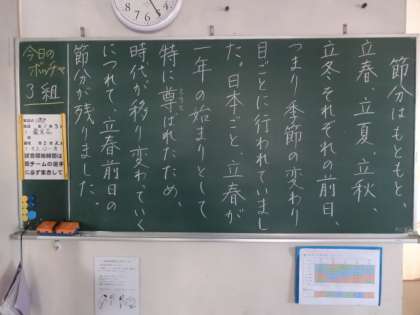 節分はもともと、
立春、立夏、立秋、
立冬それぞれの前日、
つまり季節の変わり
目ごとに行われていまし
た。日本ごと、立春が
一年の始まりとして
特に尊ばれたため、
時代が移り変わっていく
につれて、立春前日の
節分が残りました。
今日の
ボッチャ
3組
試合開始時間に
両チームの選手
に必ず集合して